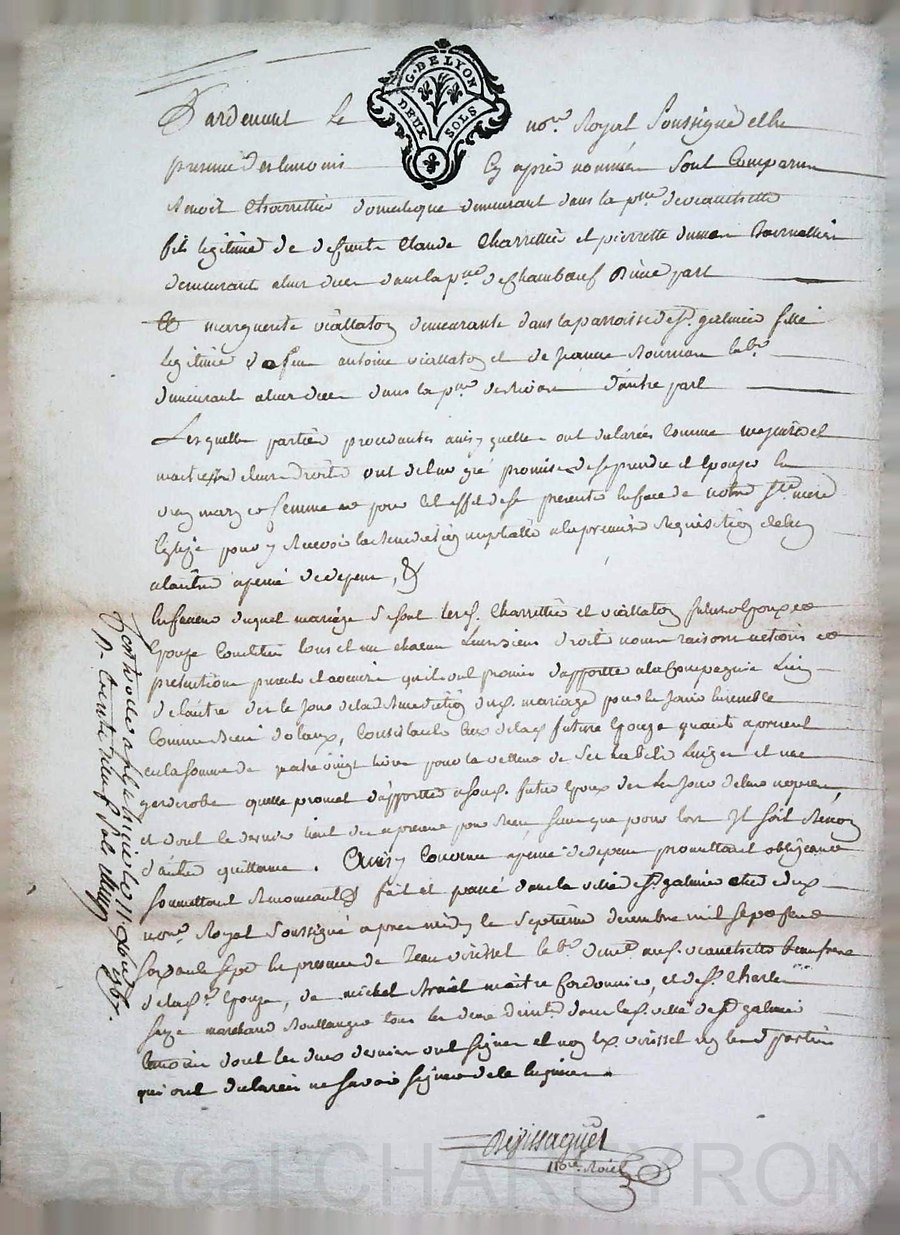 G. DE LYON
DEUX SOLS
Pardevant le no.re Royal Soussigné et en
presence des temoins cy apres nommés sont comparus
Benoit Charrettier domestique demurant dans la p.sse de veauchette
fils legitime de defunts Claude Charrettier et pierrette
demeurant a leur deces dans la p.sse de Chambœuf d'une part
Et marguerite viallaton demeurante dans la parroisse de s.t galmier fille
legitime de feu antoine viallaton et de Jeanne
demeurants a leur deces dans la p.sse de d'autre part
Lesquelles parties procedantes ainsy quelles ont declarées comme majeures et
maitresses de leurs droits ont de leur gré promis de se prendre et Epouser en
vray mary et femme et pour cet effet de se presenter en face de notre s.te mere
Eglize pour y recevoir la Benediction nuptialle a la premiere Requisition de lun
a lautre a peine de depens, &
En faveur duquel mariage se sont les s. Charrettier et viallaton futurs Epoux et
Epouze Constitué tous et un chacun leurs biens droits noms raisons actions et
pretentions presents et avenirs quils ont promis d'apporter a la Compagnie lun
de lautre des le jour de la Benediction dud. mariage pour en jouir Ensemble
Comme Biens dotaux, Consistants Ceux de la d. future Epouze quant a present
en la somme de quatre vingt livres pour la valleur de ses habits linges et une
garderobe quelle promet d'apporter a son d. futur Epoux des le jour de leurs noces,
et dont le dernier tient des a present pour sans que pour lors Il soit Besoin
d'autre quittance. Ainsy Convenu a peine de depens promettant obligeant
soumettant Renonceant & fait et passé dans la ville de s.t galmier
no.re Royal Soussigné apres midy le septieme decembre mil sept cent
soixante sept En presence de Jean virissel veauchette beaufrere
de la d. Epouze, de michel maitre Cordonnier, et de s.r Charles
marchand Boullanger tous les deux dans la d. ville de s.t galmier
temoins dont les deux derniers ont signer et non led. virissel ny les d. parties
qui ont declarées ne savoir signer de ce Enquis
no.re Roial
Controllé a le 11 Xbre 1767.
R. trente neuf sols
Pascal CHAREYRON